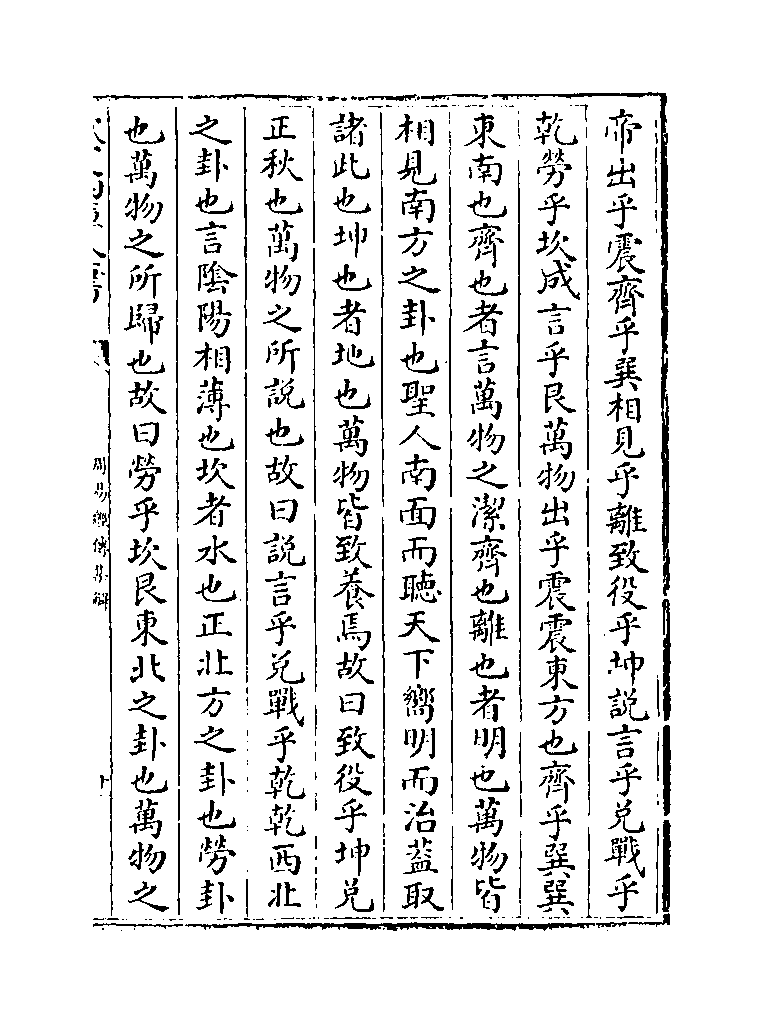 帝出乎震齊乎巽相見乎離致役乎坤説言乎兑戰乎
乾勞乎坎成言乎艮萬物出乎震震東方也齊乎巽巽
東南也齊也者言萬物之潔齊也離也者明也萬物皆
相見南方之卦也聖人南面而聴天下嚮明而治葢取
諸此也坤也者地也萬物皆致養焉故曰致役乎坤兑
正秋也萬物之所説也故曰説言乎兑戰乎乾乾西北
之卦也言隂陽相薄也坎者水也正北方之卦也勞卦
也萬物之所歸也故曰勞乎坎艮東北之卦也萬物之
周易經傳集解